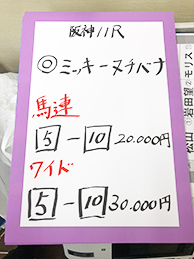 阪神11R
◎ミッキーヌチバナ
馬連
5-10 20.000円
ワイド
5-10 30.000円
モリス
岩田望
松山